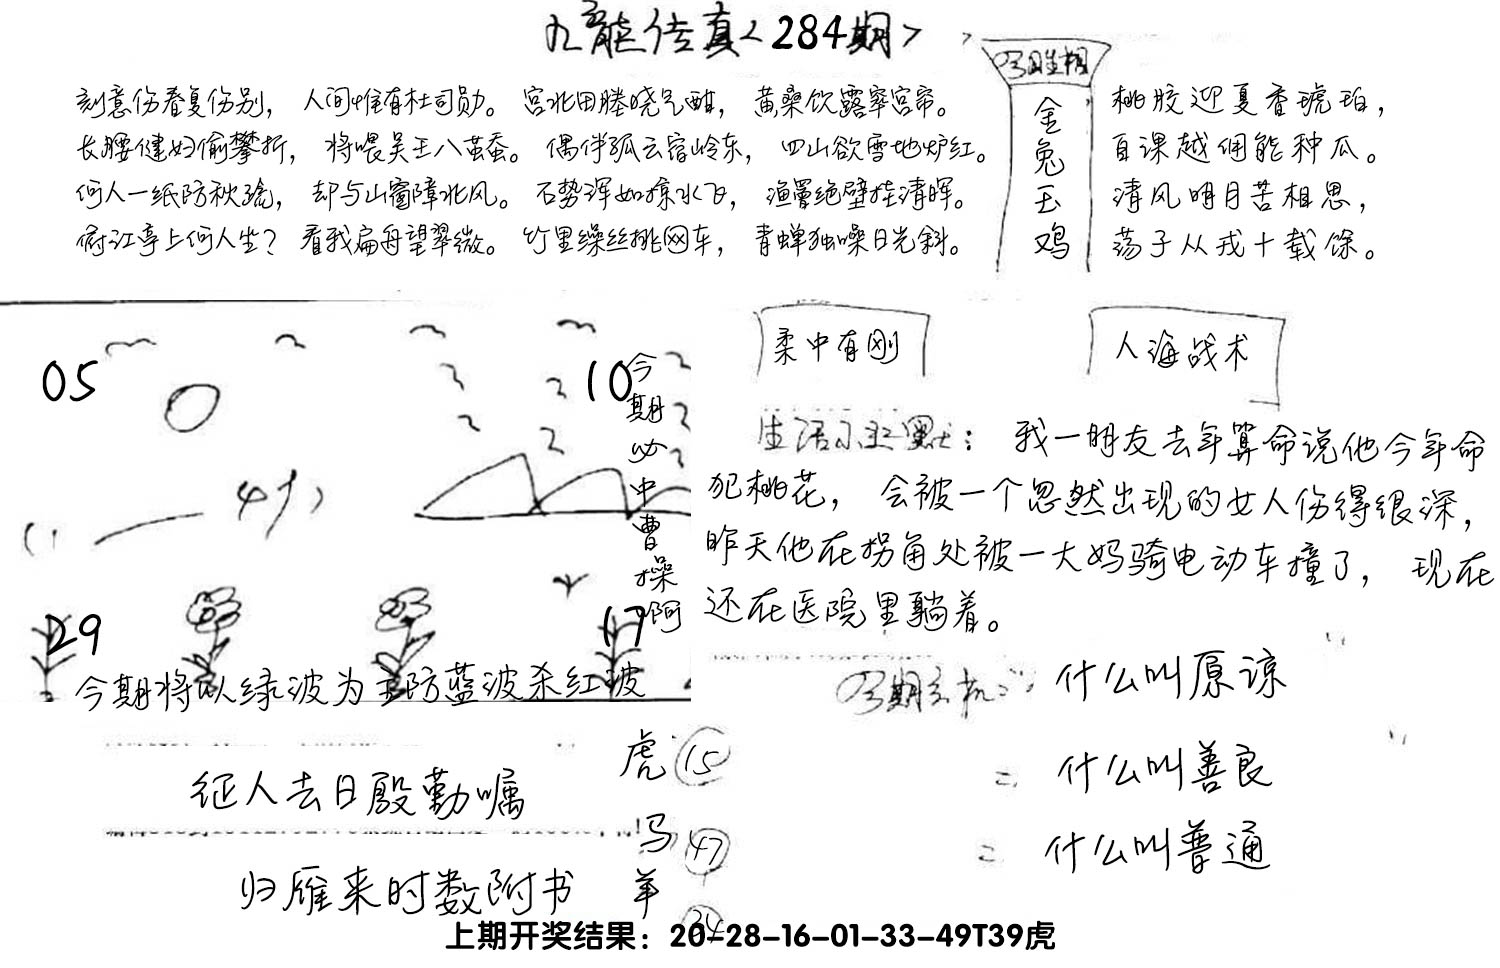 九龍传真<284期>
刻意伤春复伤别，人间惟有杜司勋。宫北田塍晓气酣，黄桑饮露窣宫帘。
长腰健妇偷攀折，将喂吴王八茧蚕。偶伴孤云宿岭东，四山欲雪地炉红。
何人一纸防秋疏，却与山窗障北风。石势浑如掠水飞，渔罾绝壁挂清晖。
俯江亭上何人坐？看我扁舟望翠微。竹里缲丝挑网车，青蝉独噪日光斜。
金兔玉鸡
桃胶迎夏香琥珀，
自课越佣能种瓜。
清风明月苦相思，
荡子从戎十载馀。
柔中有刚
人海战术
05
10
29
17
今期必中曹操啊
今期将以绿波为主防蓝波杀红波
生活小幽默：我一朋友去年算命说他今年命
犯桃花，会被一个忽然出现的女人伤得很深，
昨天他在拐角处被一大妈骑电动车撞了，现在
还在医院里躺着。
什么叫原谅
什么叫善良
什么叫普通
征人去日殷勤嘱
归雁来时数附书
虎 15
马 47
羊 34
上期开奖结果：20-28-16-01-33-49T39虎